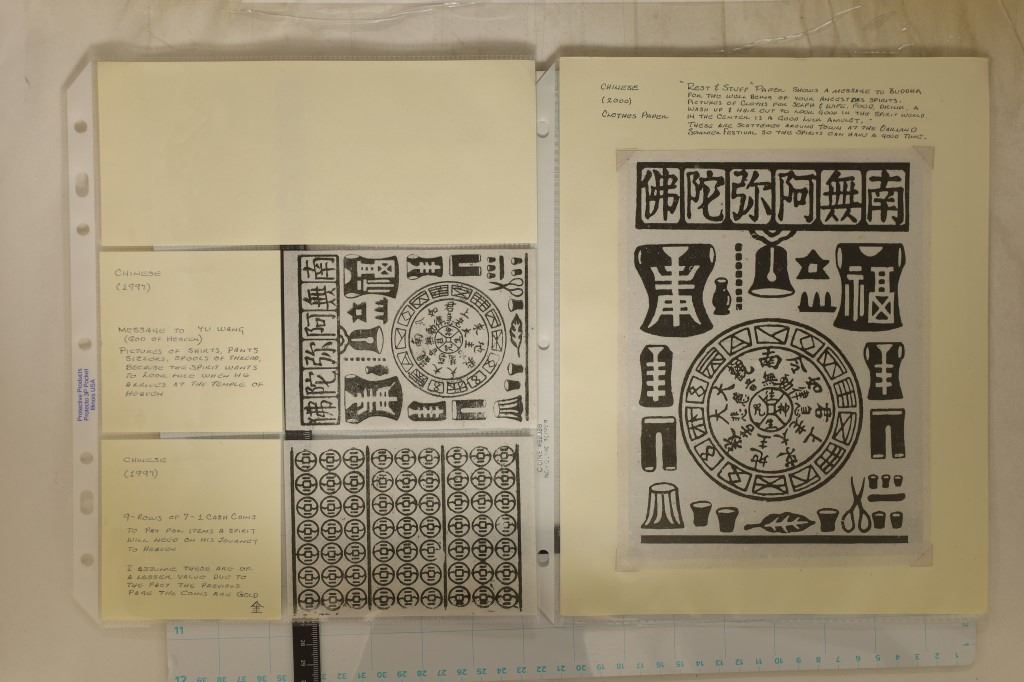 CHINESE
(1997)
MESSAGE TO YU WANG
(GOD OF HEAVEN)
PICTURES OF SHIRTS, PANTS
SIZZORS, SPOOLS OF THREAD,
BECAUSE THE SPIRIT WANTS
TO LOOK NICE WHEN HE
ARRIVES AT THE TEMPLE OF
HEAVEN
南無阿弥陀佛
福
壽
CHINESE
(1997)
9-ROWS OF 7-1 CASH COINS
TO PAY FOR ITEMS A SPIRIT
WILL NEED ON HIS JOURNEY
TO HEAVEN
I ASSUME THESE ARE OF
A LESSER VALUE DUE TO
THE FACT THE PREVIOUS
PAGE THE COINS ARE GOLD
Protective Products
Protecto 3P Pocket
Illinois USA
CHINESE
(2000)
CLOTHES PAPER
"REST & STUFF" PAPER SHOWS A MESSAGE TO BUDDHA
FOR THE WELL BEING OF YOUR ANCESTERS SPIRITS.
PICTURES OF CLOTHS FOR SELF & WIFE, FOOD, DRINK, A
WASH UP & HAIR CUT TO LOOK GOOD IN THE SPIRIT WORLD.
IN THE CENTER IS A GOOD LUCK AMULET.
THESE ARE SCATTERED AROUND TOWN AT THE OAKLAND
SUMMER FESTIVAL SO THE SPIRITS CAN HAVE A GOOD TIME.
南無阿弥陀佛
福
壽
11
12